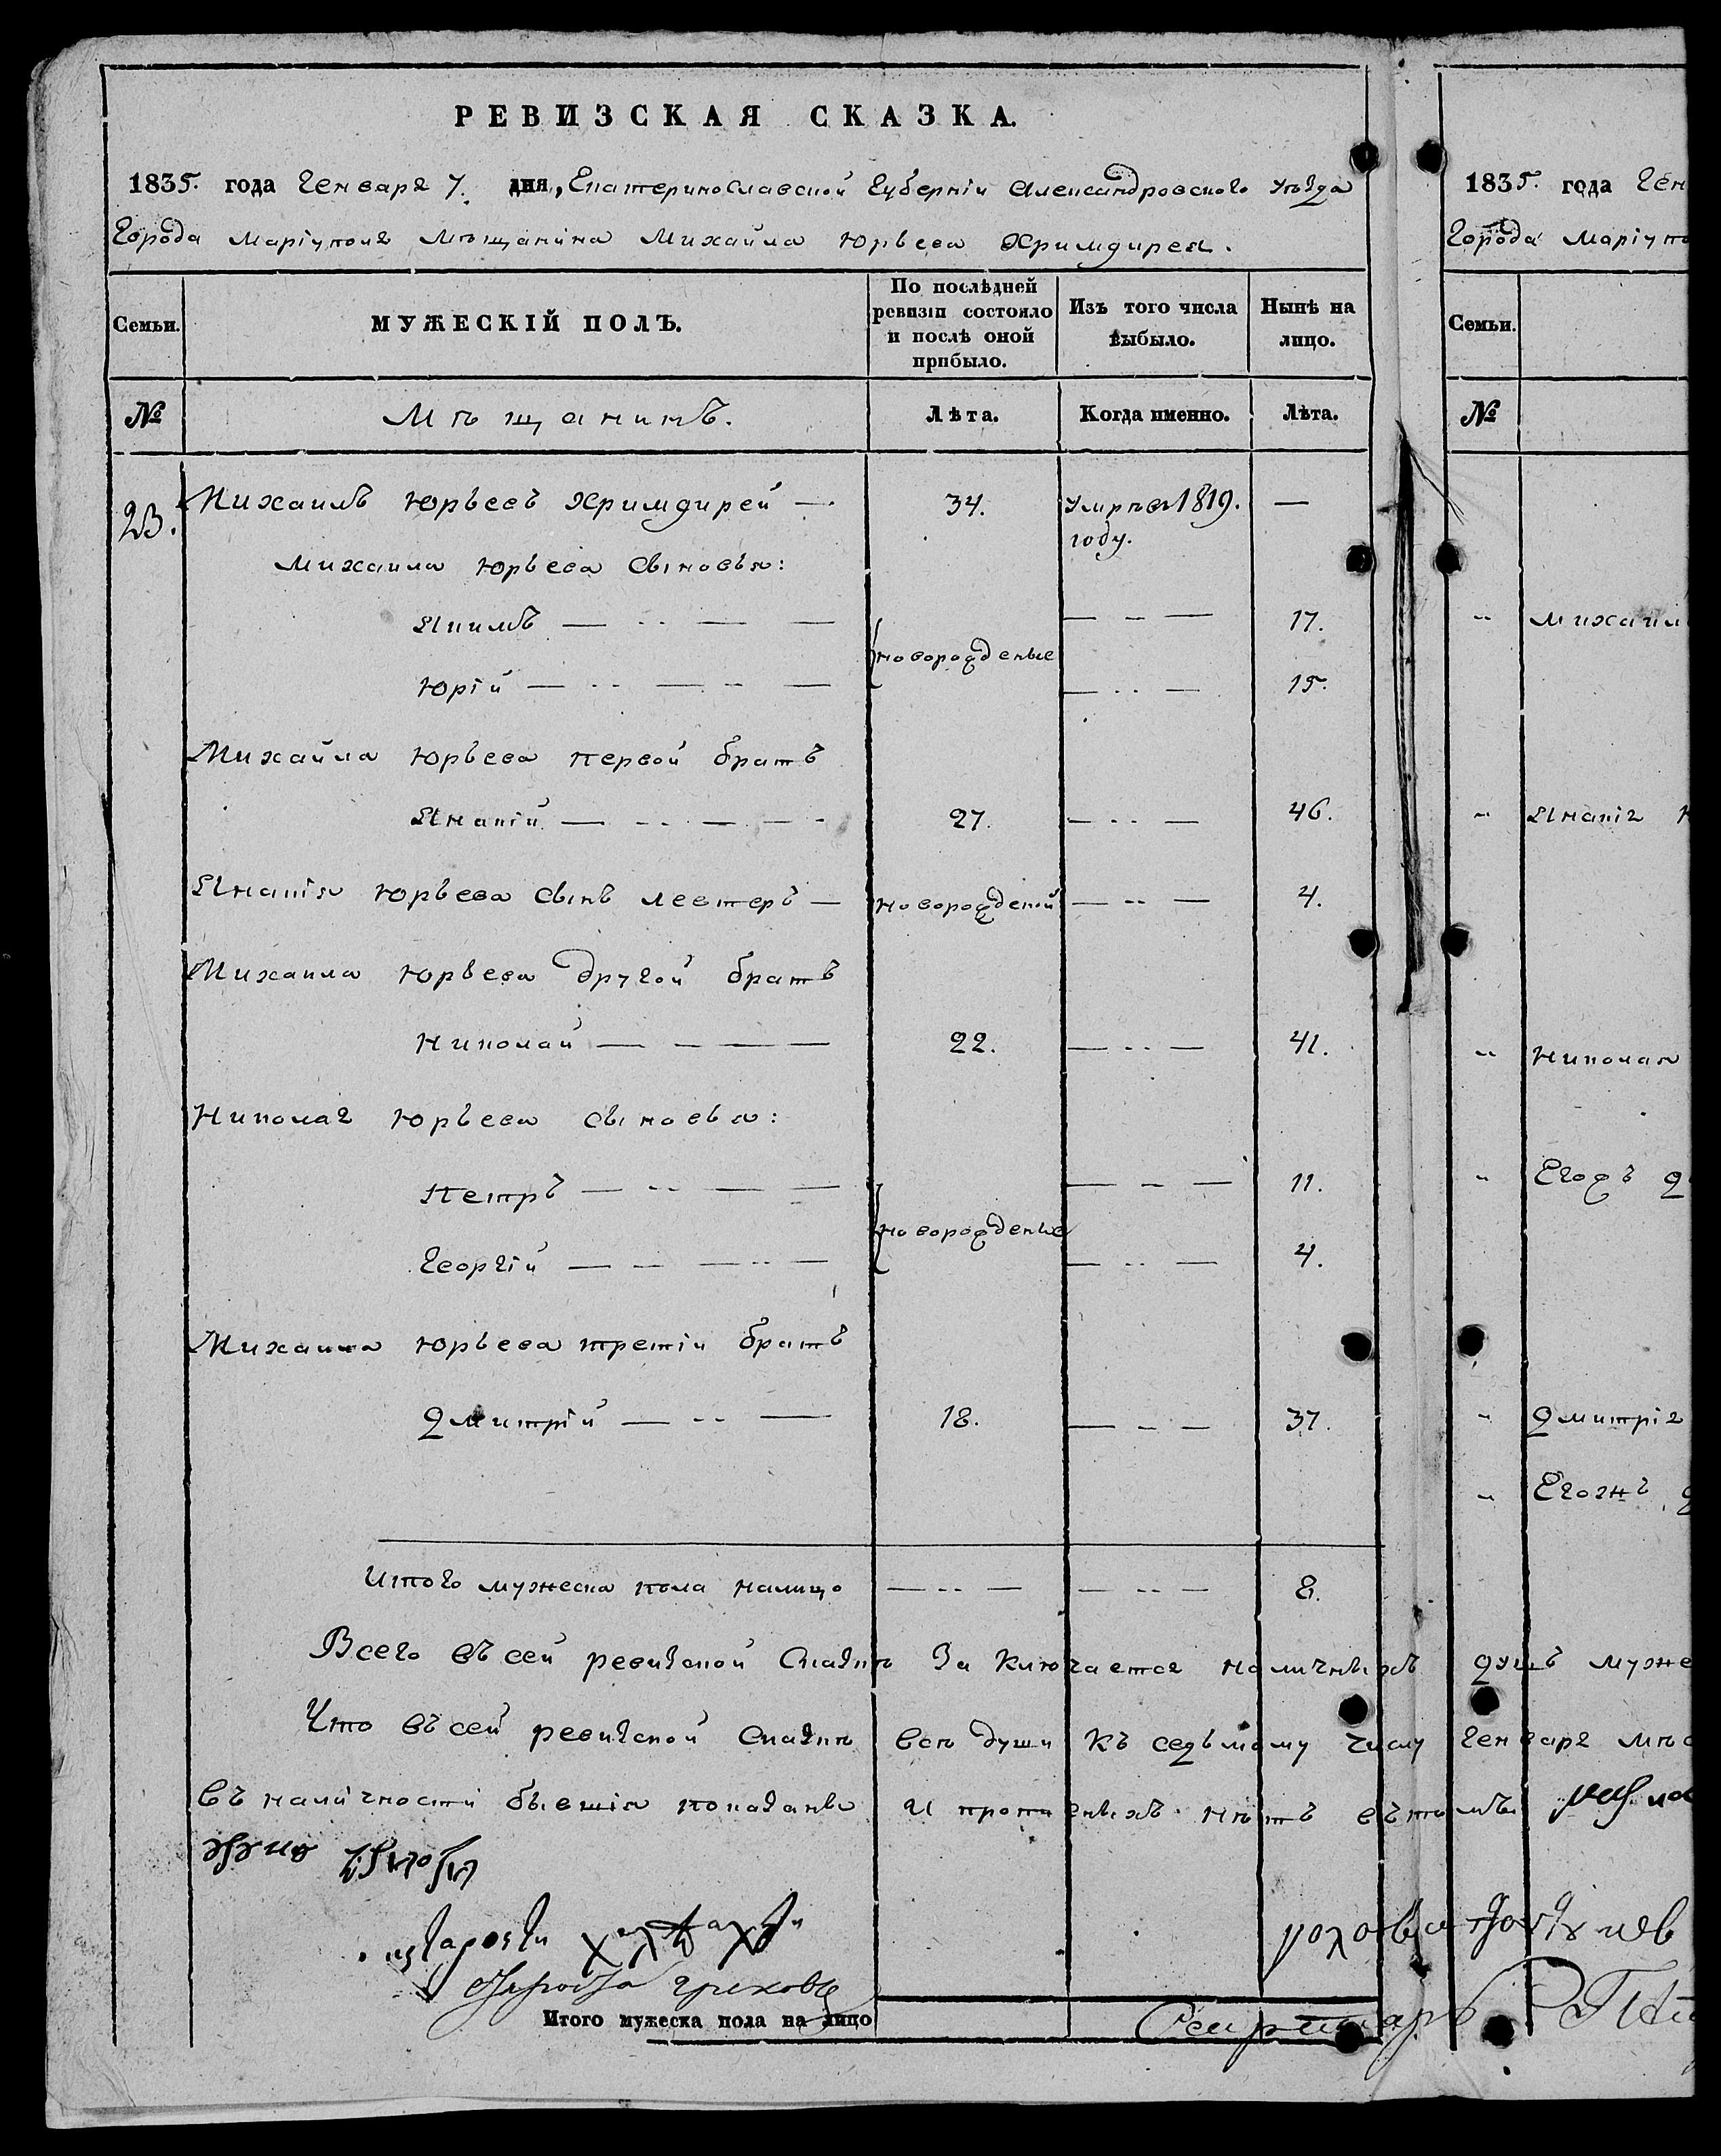 РЕВИЗСКАЯ СКАЗКА.
1835. года Генваря 7. дня, Екатеринославской Губерніи Александровского уѣзда
Города Маріуполя мѣщанина Михайла Юрьева Хримдирея.
Семьи.
МУЖЕСКІЙ ПОЛЪ.
По послѣдней ревизіи состояло и послѣ оной прибыло.
Изъ того числа выбыло.
Нынѣ на лицо.
№ Мѣщанинъ. Лѣта. Когда именно. Лѣта.
23. Михаилъ Юрьевъ Хримдирей — 34. Умрѣ въ 1819. —
году.
Михаила Юрьева сыновья:
Якимъ — 17.
новорожденые
Юрій — 15.
Михайла Юрьева первой братъ
Ананій — 27. 46.
Ананія Юрьева сынъ Левтеръ — новорожденой 4.
Михаила Юрьева другой братъ
Николай — 22. 41.
Николая Юрьева сыновья:
Петръ — 11.
новорожденые
Георгій — 4.
Михаила Юрьева третій братъ
Дмитрій — 18. 37.
Итого мужеска пола налицо 8.
Всего въ сей ревизкой Сказкѣ Заключается наличныхъ душъ муже
Что въ сей ревизкой Сказкѣ всѣ души къ седьмому числу Генваря мѣс
въ наличности бывшія показаны и пропи еныхъ нѣтъ въ томъ
староста
Итого мужеска пола на лицо
Секритарь
1835. года Ген
Города Маріупо
Семьи.
№
" Михаил
" Ананія Ю
" Николая
" Егожъ д
" Дмитрія
" Егожъ д